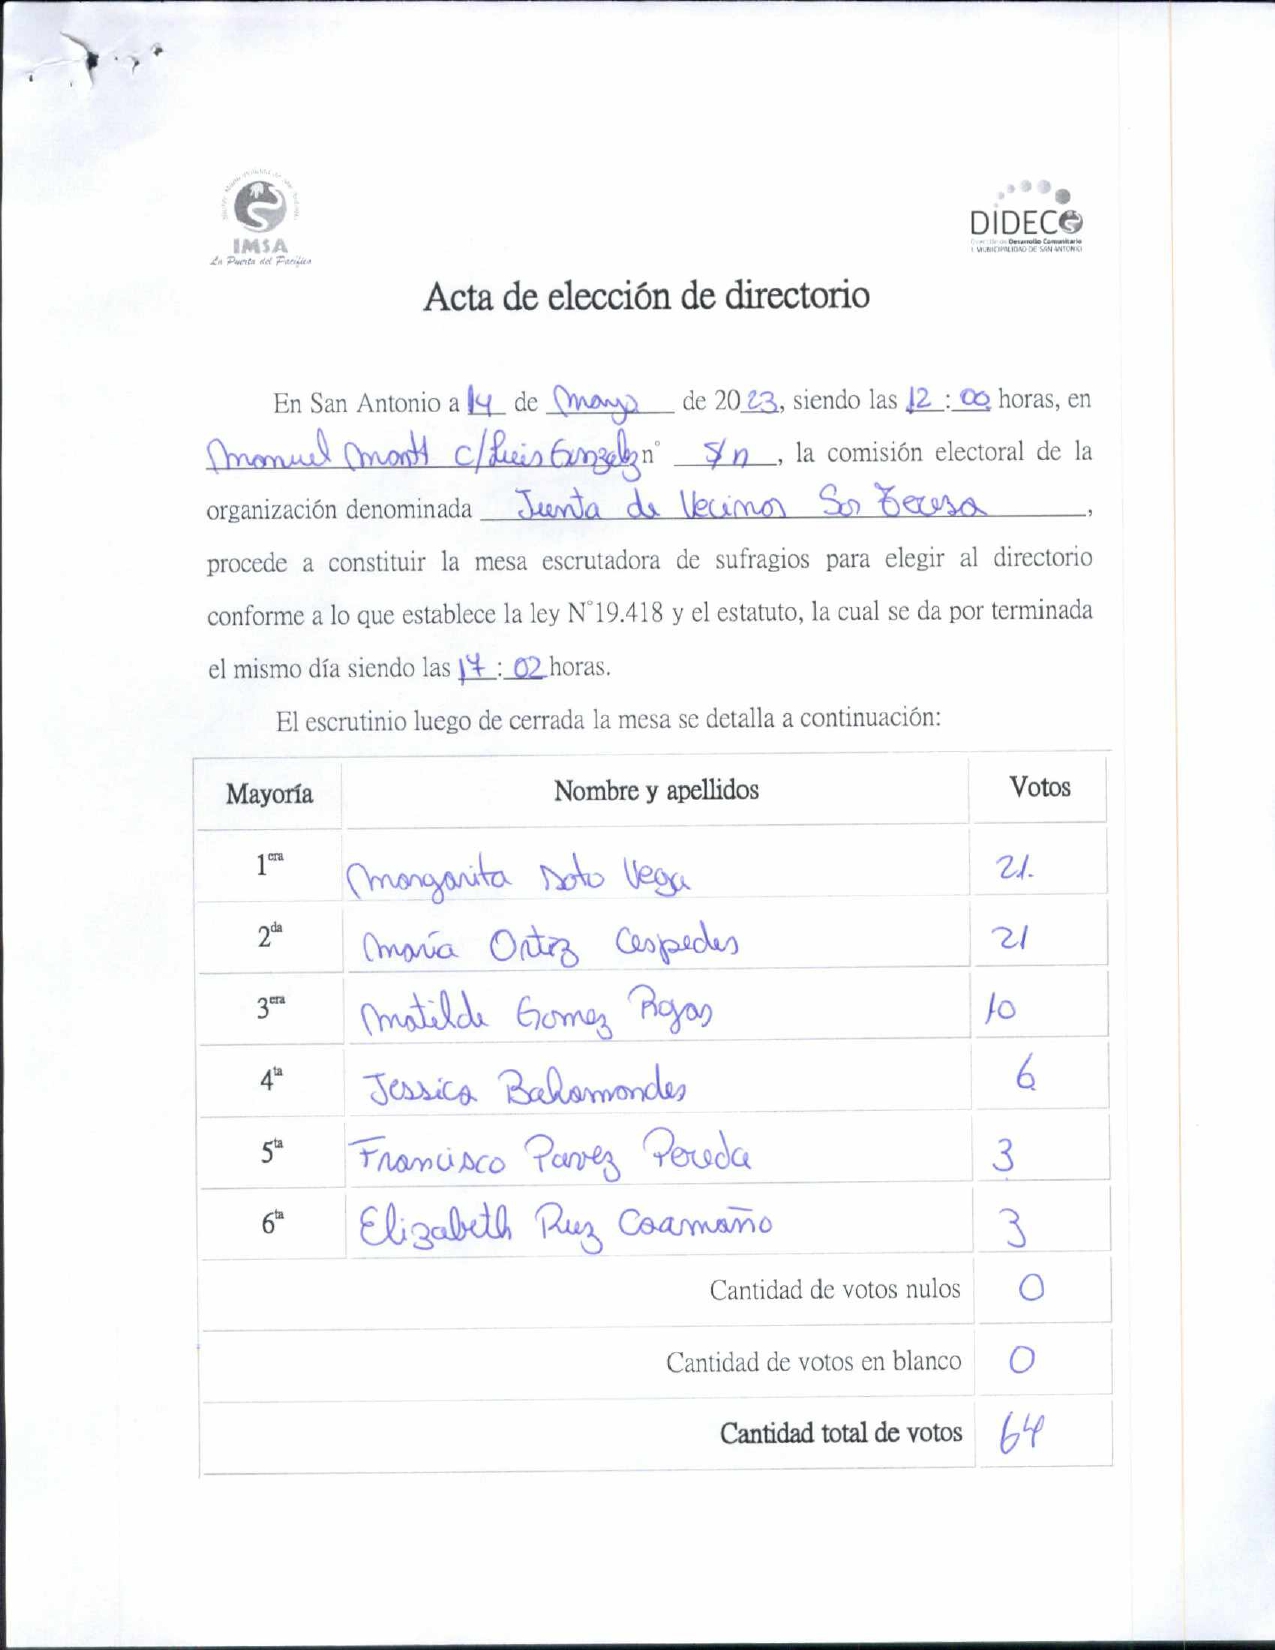 IMSA
La Puerta del Pacífico
DIDECO
Desarrollo Comunitario
I. MUNICIPALIDAD DE SAN ANTONIO
Acta de elección de directorio
En San Antonio a 14 de Mayo de 2023, siendo las 12 : 00 horas, en
Manuel Montt c/ Luis Gonzalez n° S/n, la comisión electoral de la
organización denominada Junta de Vecinos Sor Teresa,
procede a constituir la mesa escrutadora de sufragios para elegir al directorio
conforme a lo que establece la ley N°19.418 y el estatuto, la cual se da por terminada
el mismo día siendo las 17 : 02 horas.
El escrutinio luego de cerrada la mesa se detalla a continuación:
Mayoría Nombre y apellidos Votos
1era Margarita Soto Vega 21.
2da María Ortiz Cespedes 21
3era Matilde Gomez Rojas 10
4ta Jessica Bahamondes 6
5ta Francisco Pavez Poveda 3
6ta Elizabeth Ruz Caamaño 3
Cantidad de votos nulos 0
Cantidad de votos en blanco 0
Cantidad total de votos 64